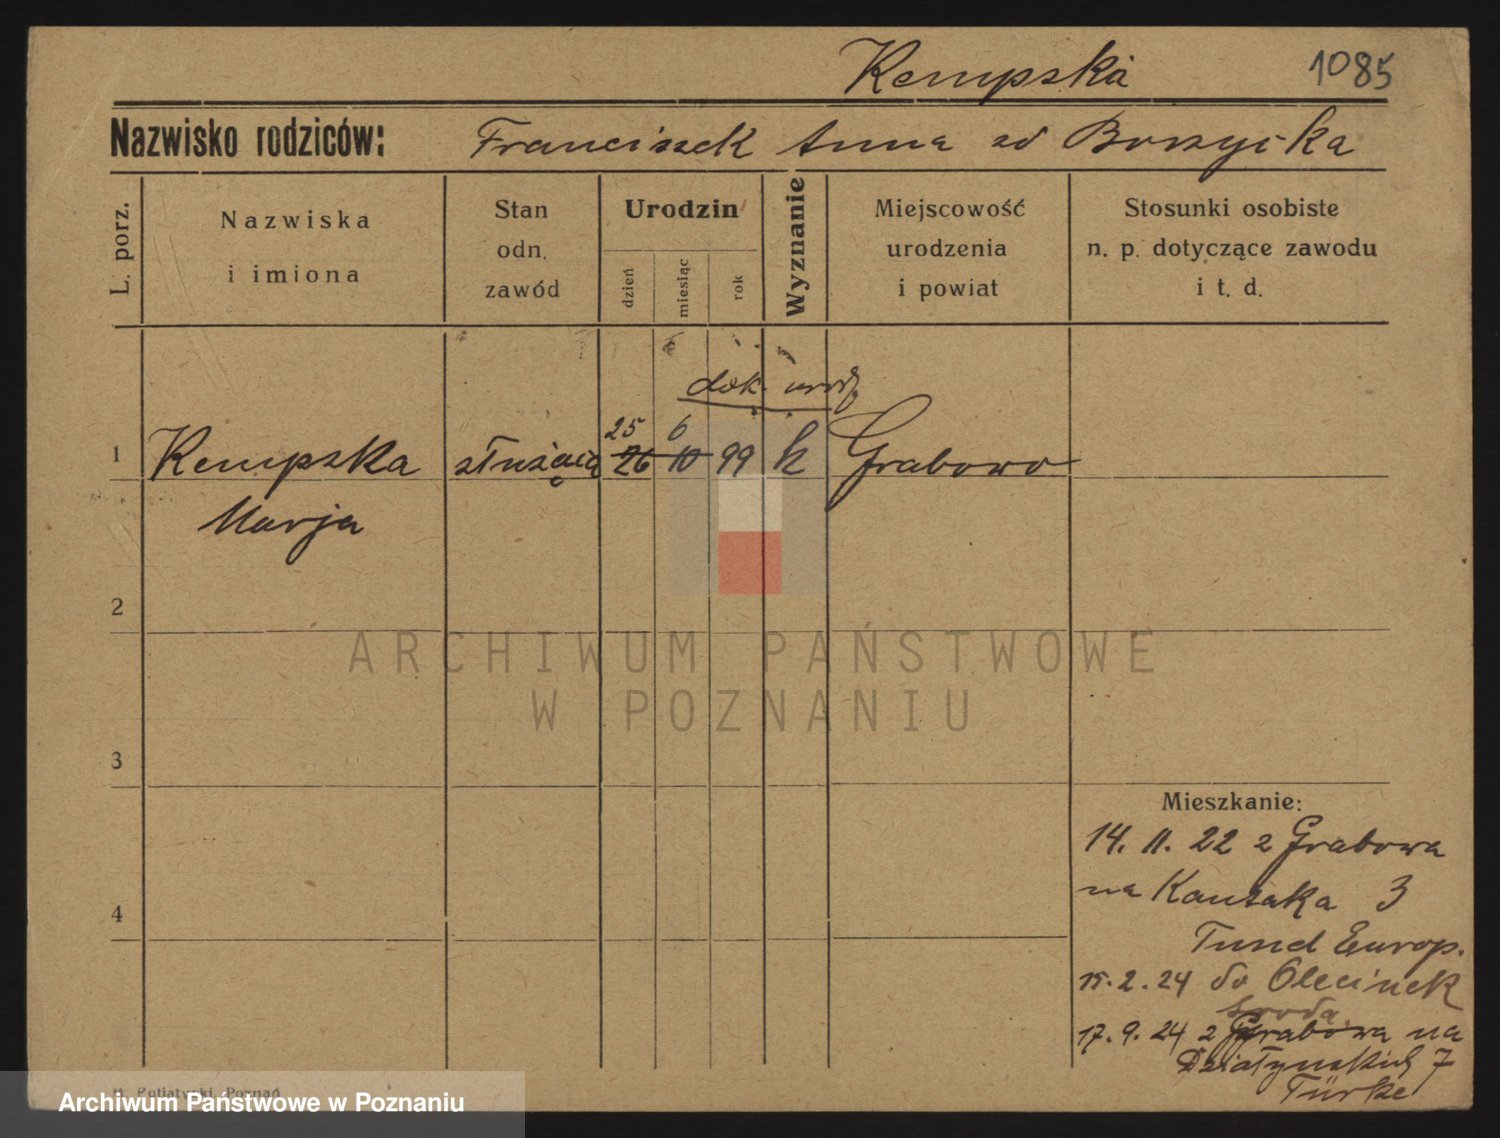 Kempska 1085
Nazwisko rodziców: Franciszek Anna zd
L. porz.
Nazwiska
i imiona
Stan
odn.
zawód
Urodzin
dzień
miesiąc
rok
Wyznanie
Miejscowość
urodzenia
i powiat
Stosunki osobiste
n. p. dotyczące zawodu
i t. d.
dok. urodz
25 6
1 Kempska służąca 26 10 99 k Grabowo
Marja
2
ARCHIWUM PAŃSTWOWE
W POZNANIU
3
Mieszkanie:
14. 11. 22 z Grabowa
na Kantaka 3
Europ.
15. 2. 24 do Olecinek
Środa.
4
17. 9. 24 z Grabowa na
Działyńskich 7
Türke
Poznań
Archiwum Państwowe w Poznaniu